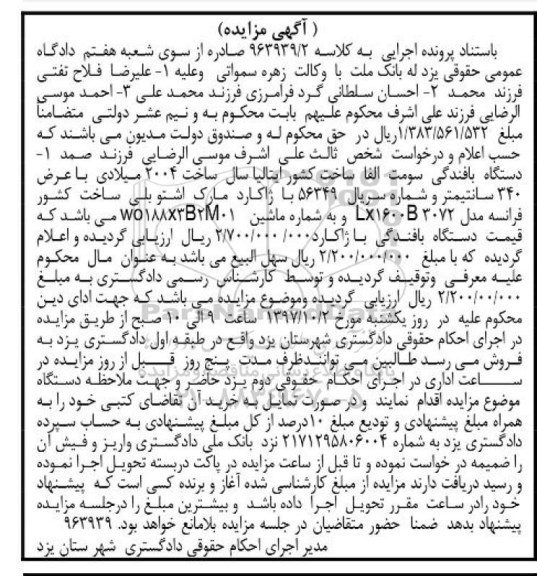 ( آگهی مزایده)
باستناد پرونده اجرایی به کلاسه ۹۶۳۹۳۹/۲ صادره از سوی شعبه هفتم دادگاه
عمومی حقوقی یزد له بانک ملت با وکالت زهره سمواتی وعلیه ۱- علیرضا فلاح تفتی
فرزند محمد ۲- احسان سلطانی گرد فرامرزی فرزند محمد علی ۳- احمد موسی
الرضایی فرزند علی اشرف محکوم علیهم بابت محکوم به و نیم عشر دولتی متضامنا
مبلغ ۱/۳۸۳/۵۶۱/۵۳۲ریال در حق محکوم له و صندوق دولت مدیون می باشند که
حسب اعلام و درخواست شخص ثالث علی اشرف موسی الرضایی فرزند صمد ۱-
دستگاه بافندگی سومت الفا ساخت کشور ایتالیا سال ساخت ۲۰۰۴ میلادی با عرض
۳۴۰ سانتیمتر و شماره سریال ۵۶۳۴۹ با ژاکارد مارک اشتو بلی ساخت کشور
فرانسه مدل Lx۱۶۰۰B ۳۰۷۲ و به شماره ماشین wo۱۸۸x۳B۲M۰۱ می باشد که
قیمت دستگاه بافندگی با ژاکارد ۲/۷۰۰/۰۰۰/۰۰۰ ریال ارزیابی گردیده و اعلام
گردیده که با مبلغ ۲/۲۰۰/۰۰۰/۰۰۰ ریال سهل البیع می باشد به عنوان مال محکوم
علیه معرفی وتوقیف گردیده و توسط کارشناس رسمی دادگستری به مبلغ
۲/۲۰۰/۰۰/۰۰۰ ریال ارزیابی گردیده وموضوع مزایده می باشد که جهت ادای دین
محکوم علیه در روز یکشنبه مورخ ۱۳۹۷/۱۰/۲ ساعت ۹ الی ۱۰ صبح از طریق مزایده
در اجرای احکام حقوقی دادگستری شهرستان یزد واقع در طبقه اول دادگستری یزد به
فروش می رسد طالبین می توانندظرف مدت پنج روز قبل از روز مزایده در
ساعت اداری در اجرای احکام حقوقی دوم یزد حاضر و جهت ملاحظه دستگاه
موضوع مزایده اقدام نمایند و در صورت تمایل به خرید آن تقاضای کتبی خود را به
همراه مبلغ پیشنهادی و تودیع مبلغ ۱۰درصد از کل مبلغ پیشنهادی به حساب سپرده
دادگستری یزد به شماره ۲۱۷۱۲۹۵۸۰۶۰۰۴ نزد بانک ملی دادگستری واریز و فیش آن
را ضمیمه در خواست نموده و تا قبل از ساعت مزایده در پاکت دربسته تحویل اجرا نموده
و رسید دریافت دارند مزایده از مبلغ کارشناسی شده آغاز و برنده کسی است که پیشنهاد
خود رادر ساعت مقرر تحویل اجرا داده باشد و بیشترین مبلغ را درجلسه مزایده
پیشنهاد بدهد ضمنا حضور متقاضیان در جلسه مزایده بلامانع خواهد بود. ۹۶۳۹۳۹
مدیر اجرای احکام حقوقی دادگستری شهر ستان یزد